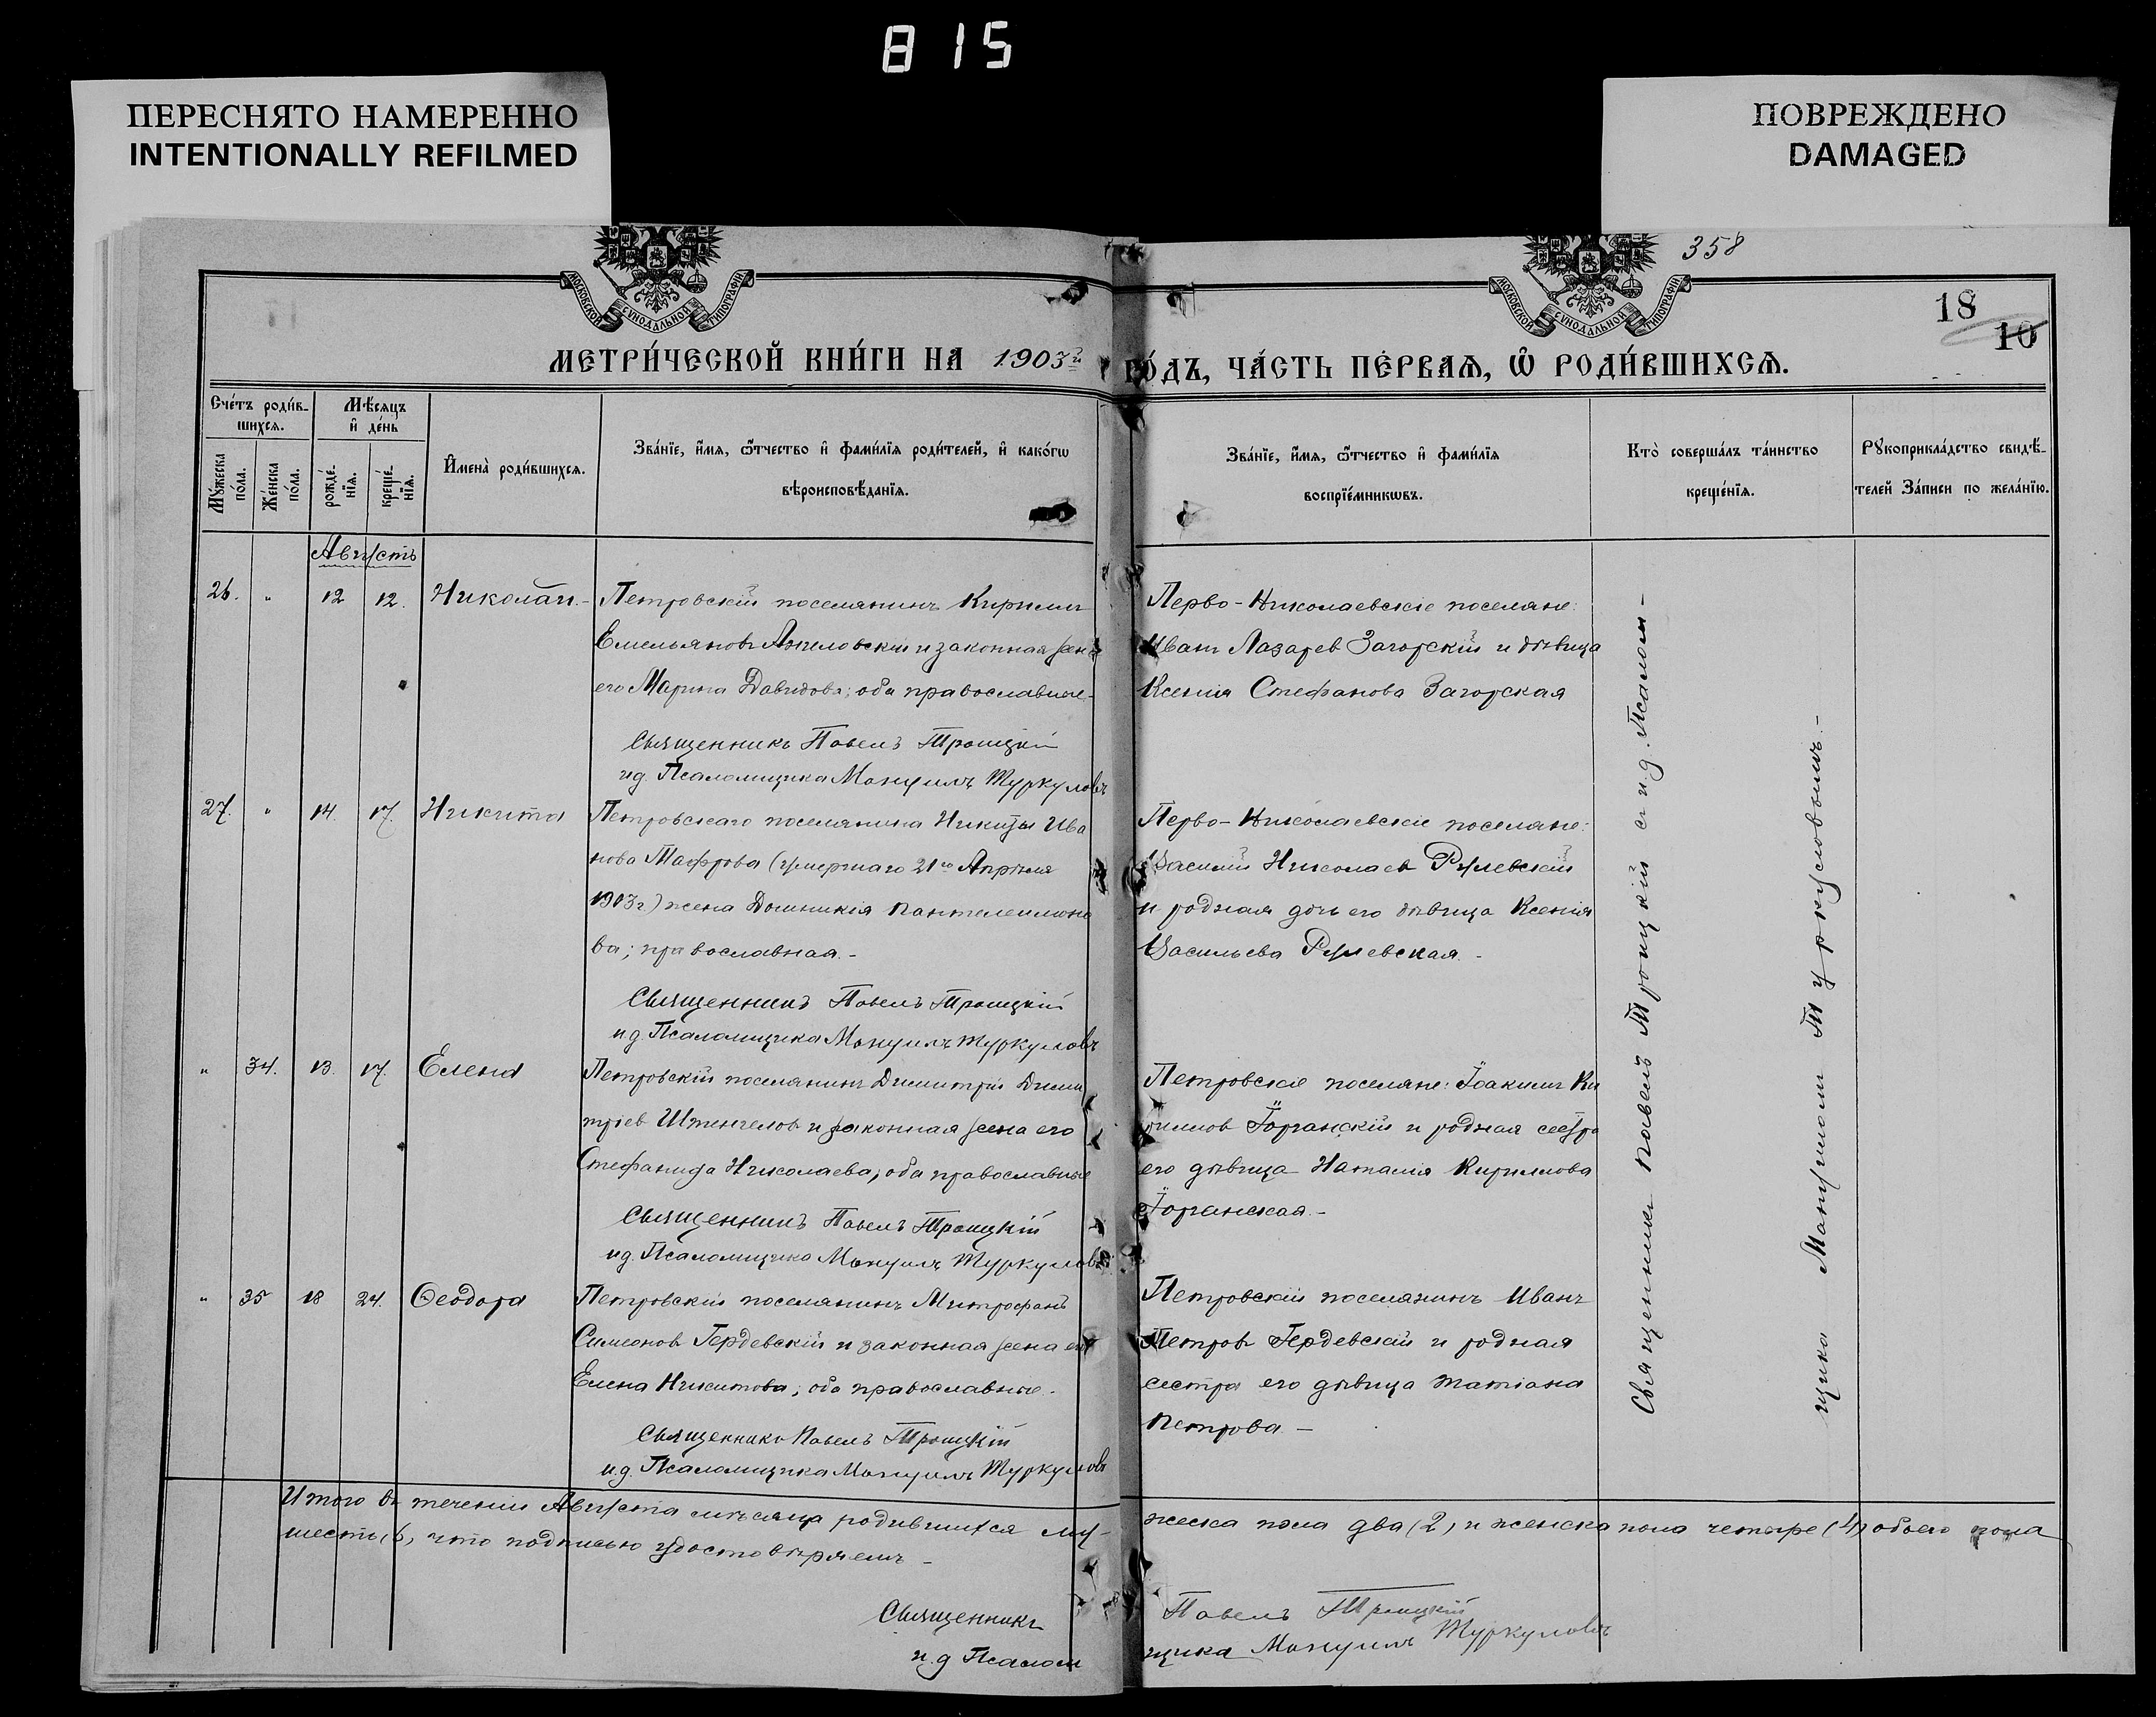 815
ПЕРЕСНЯТО НАМЕРЕННО
INTENTIONALLY REFILMED
ПОВРЕЖДЕНО
DAMAGED
358
18
10
МОСКОВСКОЙ СѴНОДАЛЬНОЙ ТИПОГРАФІИ
МОСКОВСКОЙ СѴНОДАЛЬНОЙ ТИПОГРАФІИ
МЕТРИ́ЧЕСКОЙ КНИ́ГИ НА 1903й
ГО́ДЪ, ЧА́СТЬ ПЕ́РВАѦ, Ѡ РОДИ́ВШИХСѦ.
Сче́тъ роди́в-
шихсѧ.
Мѣ́сѧцъ
и҆ де́нь
Мꙋ́жеска
по́ла.
Же́нска
по́ла.
рожде́-
нїѧ.
креще́-
нїѧ.
И҆мена̀ роди́вшихсѧ.
Зва́нїе, и҆́мѧ, ѻ҆́тчество и҆ фами́лїѧ роди́телей, и҆ како́гѡ
вѣроисповѣ́данїѧ.
Зва́нїе, и҆́мѧ, ѻ҆́тчество и҆ фами́лїѧ
воспрїе́мникѡвъ.
Кто̀ соверша́лъ та́инство
креще́нїѧ.
Рꙋкоприкла́дство свидѣ́-
телей За́писи по жела́нїю.
Августъ
26. " 12 12. Николай.- Петровскій поселянинъ Кирилъ
Емельяновъ и законная жена
его Марина Давидова; оба православные.
Священникъ Павелъ Троицкій
и.д. Псаломщика Мануилъ Туркуловъ
Перво-Николаевскіе поселяне:
Иванъ Лазарев Загорскій и дѣвица
Ксенія Стефанова Загорская
27. " 14. 17. Никита Петровскаго поселянина Никиты Ива
нова (умершаго 21го Апрѣля
1903г.) жена Домникія Пантелеимоно
ва; православная.-
Священникъ Павелъ Троицкій
и.д. Псаломщика Мануилъ Туркуловъ
Перво-Николаевскіе поселяне:
Василій Николаев Рулевскій
и родная дочь его дѣвица Ксенія
Васильева Рулевская.-
" 34. 13. 17. Елена Петровскій поселянинъ Димитрій Дими
тріев и законная жена его
Стефанида Николаева; оба православные
Священникъ Павелъ Троицкій
и.д. Псаломщика Мануилъ Туркуловъ
Петровскіе поселяне: Іоакимъ Ки
риллов Іорганскій и родная сестра
его дѣвица Наталія Кириллова
Іорганская.-
" 35 18 24. Ѳеодора Петровскій поселянинъ Митрофанъ
Симеонов Гердевскій и законная жена его
Елена Никитова; оба православные.
Священникъ Павелъ Троицкій
и.д. Псаломщика Мануилъ Туркуловъ
Петровскій поселянинъ Иванъ
Петров Гердевскій и родная
сестра его дѣвица Татіана
Петрова -
Священникъ Павелъ Троицкій съ и.д. Псалом-
щика Мануиломъ Туркуловымъ.-
Итого въ теченіи Августа мѣсяца родившихся му-
жеска пола два (2) и женска пола четыре (4) обоего пола
шесть (6, что подписью удостовѣряемъ -
Священникъ Павелъ Троицкій
и.д Псаломщика Мануилъ Туркуловъ